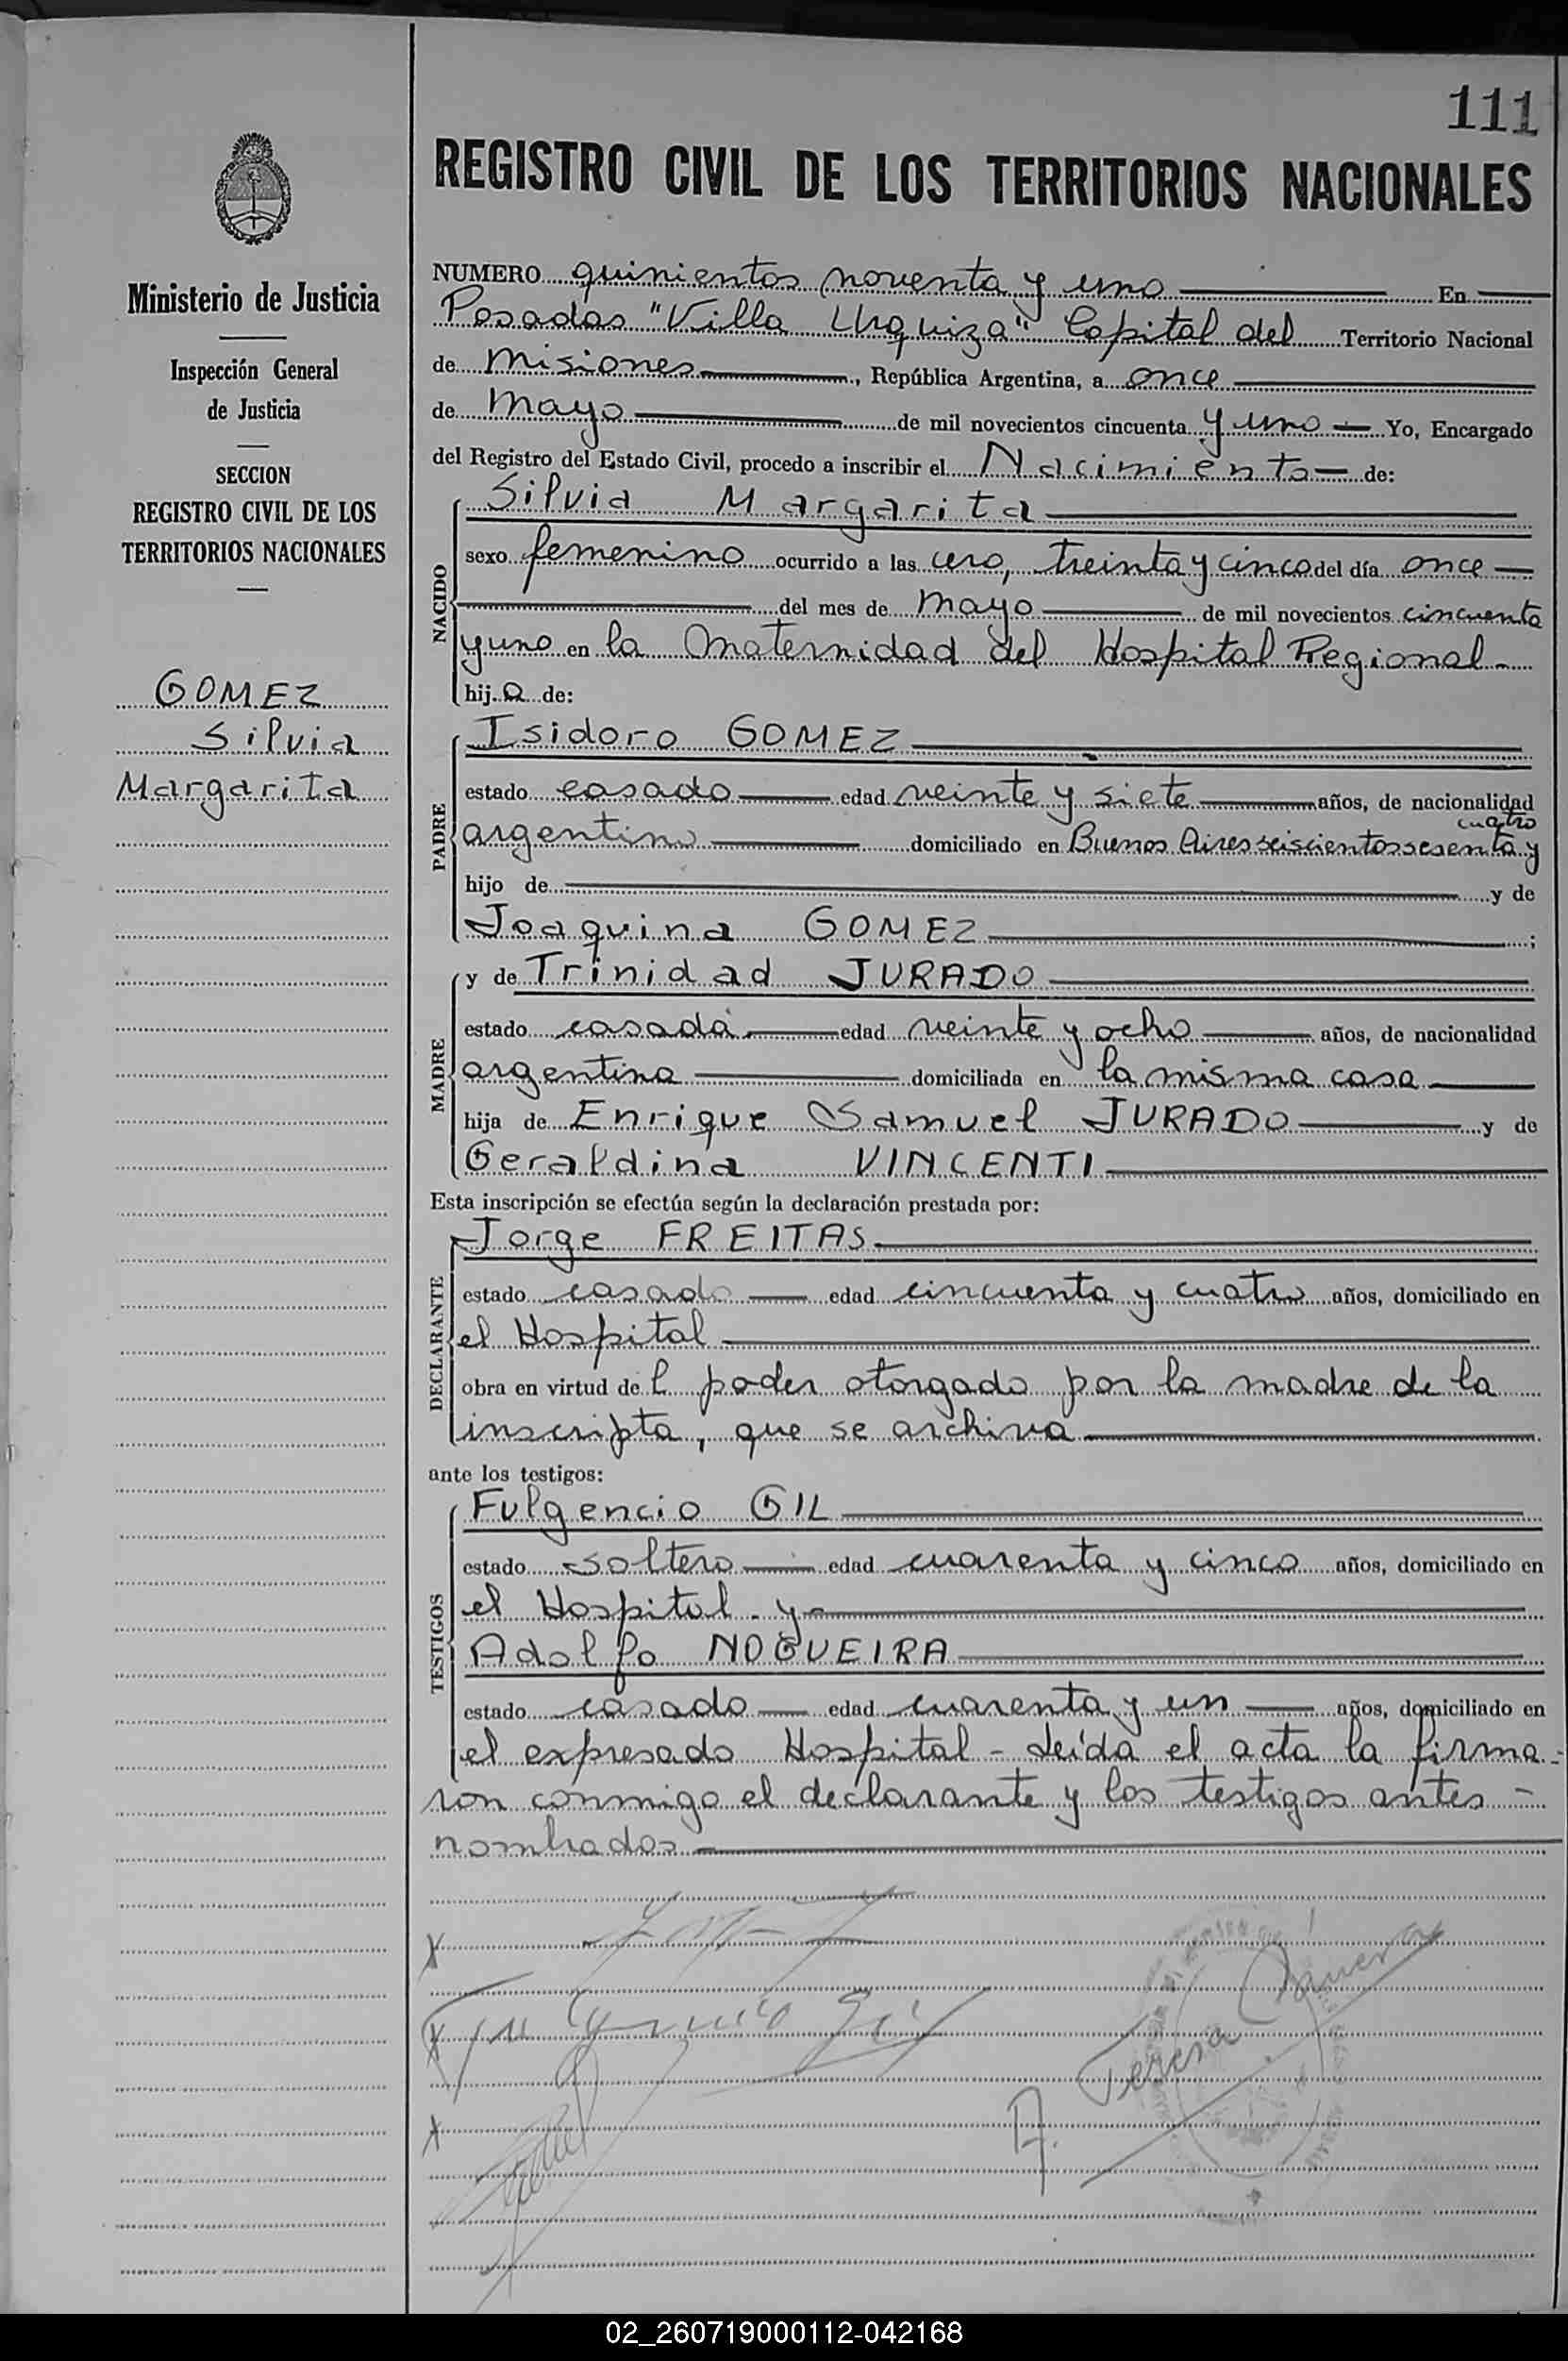 111
REGISTRO CIVIL DE LOS TERRITORIOS NACIONALES
Ministerio de Justicia
Inspección General
de Justicia
SECCION
REGISTRO CIVIL DE LOS
TERRITORIOS NACIONALES
GOMEZ
Silvia
Margarita
NUMERO quinientos noventa y uno En
Posadas "Villa Urquiza" Capital del Territorio Nacional
de Misiones, República Argentina, a once
de Mayo de mil novecientos cincuenta y uno Yo, Encargado
del Registro del Estado Civil, procedo a inscribir el Nacimiento de:
NACIDO
Silvia Margarita
sexo femenino ocurrido a las cero, treinta y cinco del día once
del mes de Mayo de mil novecientos cincuenta
y uno en la Maternidad del Hospital Regional
hija de:
PADRE
Isidoro GOMEZ
estado casado edad veinte y siete años, de nacionalidad
argentino domiciliado en Buenos Aires seiscientos sesenta y cuatro
hijo de y de
Joaquina GOMEZ ;
MADRE
y de Trinidad JURADO
estado casada edad veinte y ocho años, de nacionalidad
argentina domiciliada en la misma casa
hija de Enrique Samuel JURADO y de
Geraldina VINCENTI
Esta inscripción se efectúa según la declaración prestada por:
DECLARANTE
Jorge FREITAS
estado casado edad cincuenta y cuatro años, domiciliado en
el Hospital
obra en virtud del poder otorgado por la madre de la
inscripta, que se archiva
ante los testigos:
TESTIGOS
Fulgencio GIL
estado soltero edad cuarenta y cinco años, domiciliado en
el Hospital y
Adolfo NOGUEIRA
estado casado edad cuarenta y un años, domiciliado en
el expresado Hospital - Leída el acta la firma-
ron conmigo el declarante y los testigos antes -
nombrados
Fulgencio Gil
A. Teresa
02_260719000112-042168